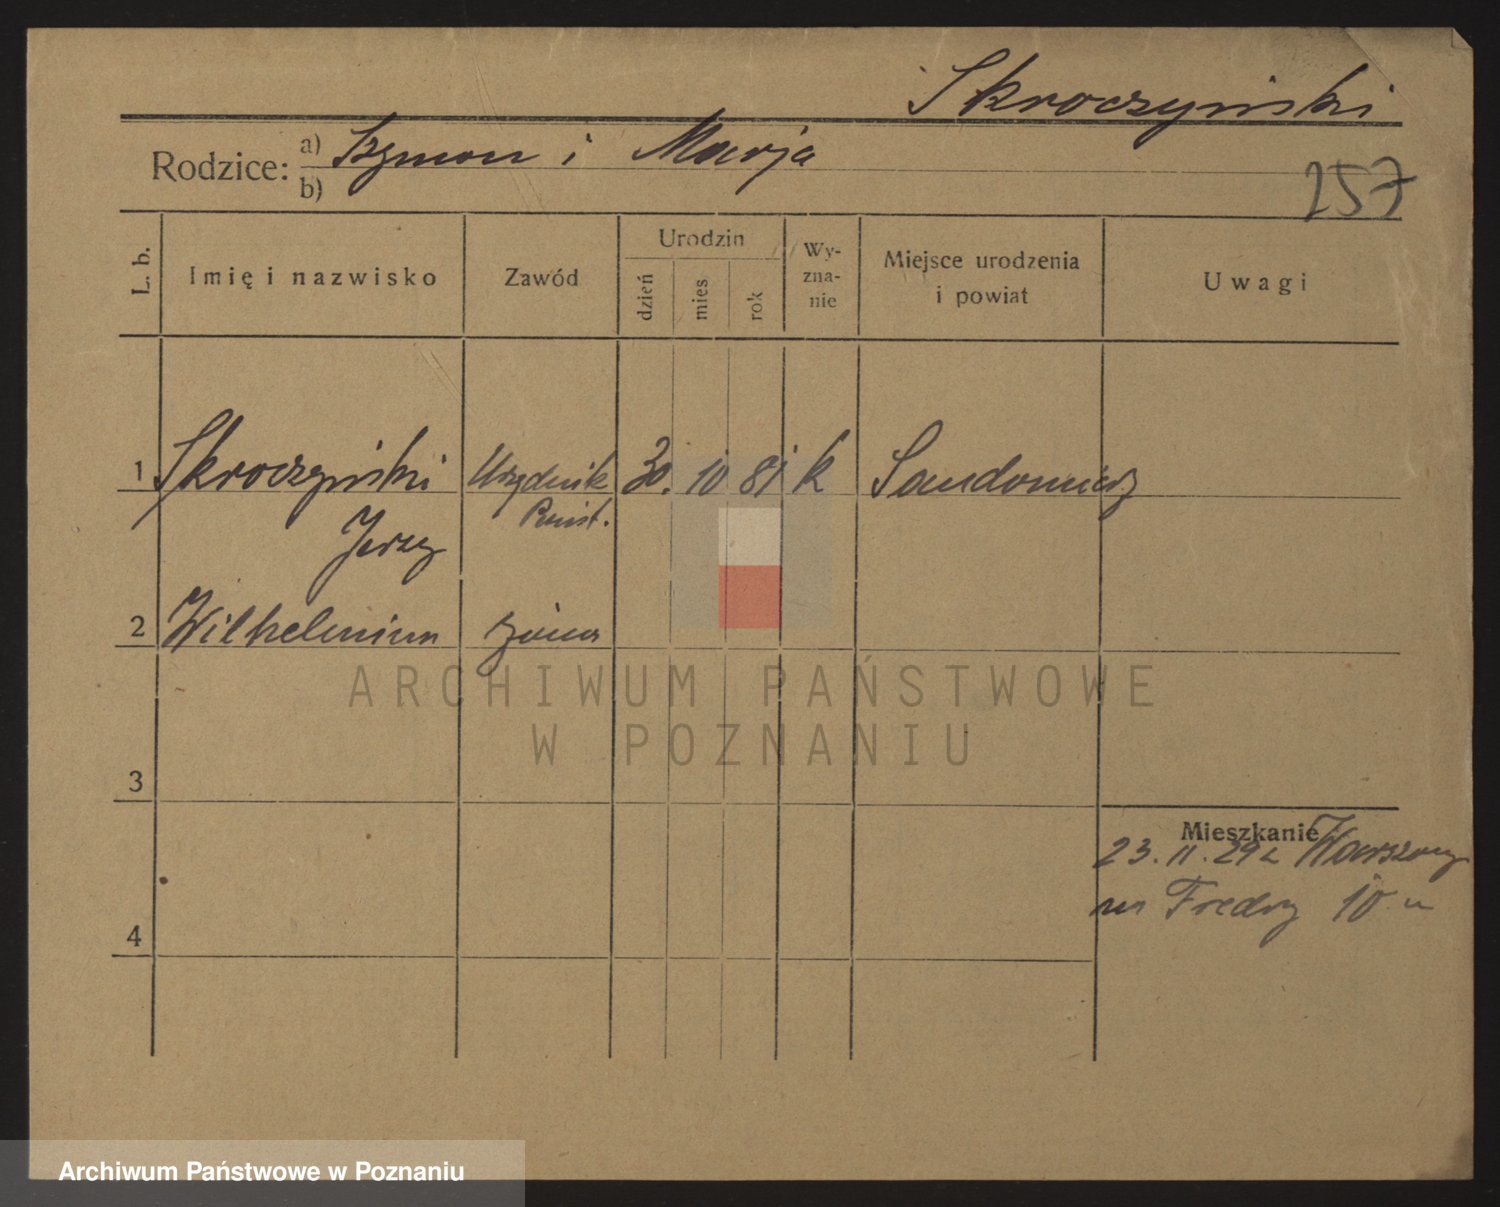 Skroczyński
Rodzice: a) Szymon i Marja
b)
257
L. b.
Imię i nazwisko
Zawód
Urodzin
dzień
mies
rok
Wy-
zna-
nie
Miejsce urodzenia
i powiat
Uwagi
1 Skroczyński Urzędnik 30. 10 81 k Sandomierz
Państ.
Jerzy
2 Wilhelmina żona
ARCHIWUM PAŃSTWOWE
W POZNANIU
3
Mieszkanie
23.11.29 z Warszawy
na Fredry 10
4
Archiwum Państwowe w Poznaniu